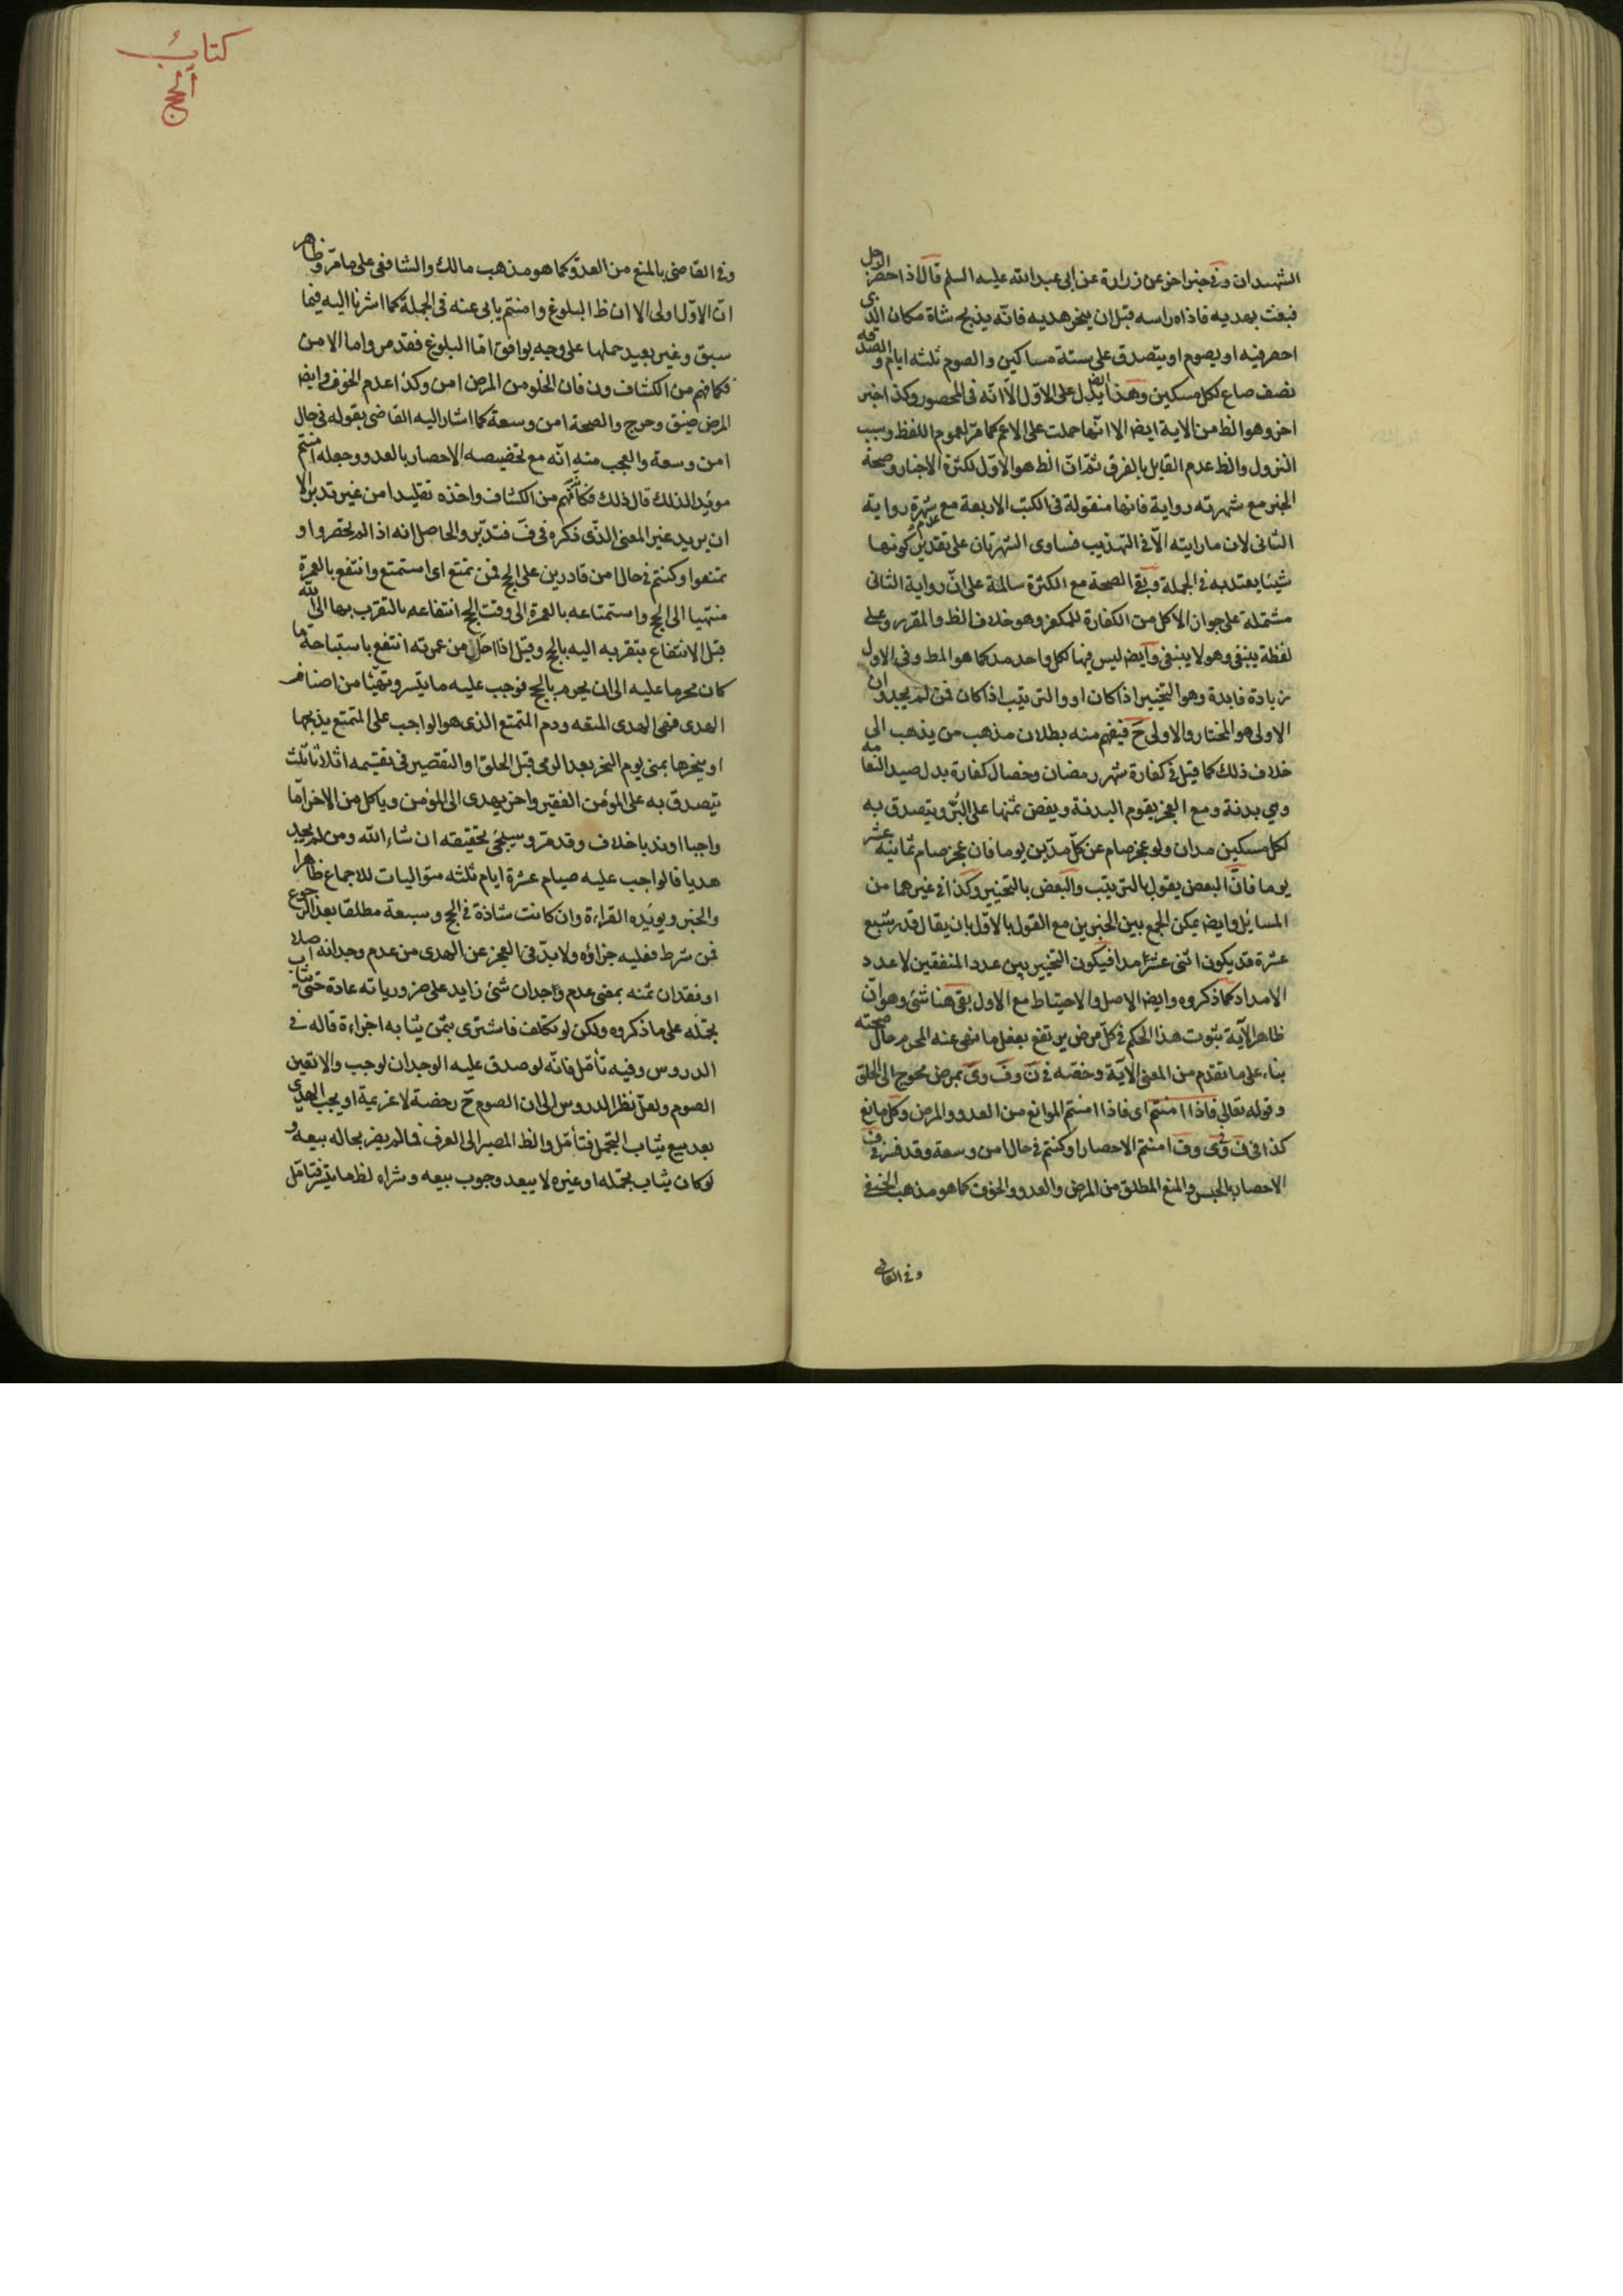 الشهيدان وفى خبر اخر عن زرارة عن ابى عبد الله عليه السلم قال اذا احصر الرجل
فبعث بهديه فاذاه راسه قبل ان ينحر هديه فانّه يذبح شاة مكان الذى
احصر فيه او يصوم او يتصدق على ستة مساكين والصوم ثلثه ايام والصدقه
نصف صاع لكل مسكين وهذا ايض يدل على الاوّل الّا انّه فى المحصور وكذا خبر
اخر وهو الظ من الاية ايضا الا انّها حملت على الاعم كما مرّ لعموم اللفظ وسبب
النزول والظ عدم القايل بالفرق ثمّ انّ الظ هو الاوّل لكثرة الاخبار وصحة
الخبر مع شهرته رواية فانها منقولة فى الكتب الاربعة مع شهرة رواية
الثانى لان ما رايته الّا فى التهذيب فساوى الشهرتان على تقدير عدم كونها
شيئا يعتد به فى الجملة وبقى الصحة مع الكثرة سالمة على انّ رواية الثانى
مشتملة على جوان الاكل من الكفارة للمكفر وهو خلاف الظ والمقرر وعلى
لفظة ينبغى وهو لا ينبغى وايض ليس فيها لكل واحد مد كما هو المط وفى الاول
زيادة فايدة وهو التخيير اذا كان او والترتيب اذ كان فمن لم يجد وان
الاولى هو المختار والاولى حَ فيفهم منه بطلان مذهب من يذهب الى
خلاف ذلك كما قيل فى كفارة شهر رمضان وخصال كفارة بدل صيد النعامه
وهى بدنة ومع العجز يقوم البدنة ويفض ثمنها على البُرّ ويتصدق به
لكل مسكين مدان ولو عجز صام عن كلّ مدّين يوما فان عجز صام ثمانية عشر
يوما فانّ البعض يقول بالترتيب والبعض بالتخيير وكذا فى غيرهما من
المسايل وايضا يمكن الجمع بين الخبرين مع القول بالاوّل بان يقال قدر شبع
عشرة قد يكون اثنى عشر مدا فيكون التخيير بين عدد المنفقين لا عدد
الامداد كما ذكروه وايضا الاصل والاحتياط مع الاول بقى هنا شئ وهو انّ
ظاهر الآية ثبوت هذا الحكم فى كلّ مرض يرتفع بفعل ما نهى عنه المحرم حال صحته
بناء على ما تقدم من المعنى الآية وخصّه فى نَ وفَ وىَ بمرض محوج الى الحلق
وقوله تعالى فاذا امنتم اى فاذا امنتم الموانع من العدو والمرض وكل مانع
كذا فى نَ وفى ىَ وفَ امنتم الاحصار او كنتم فى حال امن وسعة وقد فسر فى فَ
الاحصار بالحبس والمنع المطلق من المرض والعدو والخوف كما هو مذهب الحنفى
وفى القاضى
كتابُ
الحج
وفى القاضى بالمنع من العدوّ كما هو مذهب مالك والشافعى على ما مرّ وظاهر
انّ الاوّل اولى الا ان ظ البلوغ وامنتم يابى عنه فى الجملة كما اشرنا اليه فيما
سبق وغير بعيد حملها على وجه يوافق امّا البلوغ فقد مر واما الامن
فكما فهم من الكشاف ون فان الخلو من المرض امن وكذا عدم الخوف وايضا
المرض ضيق وحرج والصحة امن وسعة كما اشار اليه القاضى بقوله فى حال
امن وسعة والعجب منه انّه مع تخصيصه الاحصار بالعدو وجعله امنتم
مويّدا لذلك قال ذلك فكانّه فهم من الكشاف واخذه تقليدا من غير تدبر الا
ان يريد غير المعنى الذّى ذكره فى فَ فتدبّر والحاصل انه اذا لم تحصروا و
تمنعوا وكنتم فى حال امن قادرين على الحج فمن تمتع اى استمتع وانتفع بالعمرة
منتهيا الى الحج واستمتاعه بالعمرة الى وقت الحج انتفاعه بالتقرب بها الى الله
قبل الانتفاع بتقربه اليه بالحج وقيل اذا احلّ من عمرته انتفع باستباحة ما
كان محرما عليه الى ان يحرم بالحج فوجب عليه ما يتسر وتهيّئا من اصناف
الهدى فهى الهدى المتعه ودم المتمتع الذى هو الواجب على المتمتع يذبحها
او ينحرها بمنى يوم النحر بعد الرمى قبل الحلق او التقصير فى تقسيمه اثلاثا ثلث
يتصدق به على المؤمن الفقير واخر يهدى الى المؤمن وياكل من الاخر امّا
واجبا او ندبا خلاف وقد مرّ وسيجئ تحقيقه ان شاء الله ومن لم يجد
هديا فالواجب عليه صيام عشرة ايام ثلثه متواليات للاجماع ظاهرا
والخبر ويؤيده القراءة وان كانت شاذة فى الحج وسبعة مطلقا بعد الرجوع
فمن شرط فعليه جزاؤه ولا بدّ فى العجز عن الهدى من عدم وجدانه اصلا
او فقدان ثمنه بمعنى عدم وجدان شئ زايد على ضرورياته عادة حتى ثياب
تجمّله على ما ذكروه ولكن لو تكلف فاشترى بثمن ثيابه اجزاءة قاله فى
الدروس وفيه تأمّل فانّه لو صدق عليه الوجدان لوجب والا تعين
الصوم ولعلّ نظر الدروس الى ان الصوم حَ رخصة لا عزيمة او يجب الهدى
بعد بيع ثياب التجمل فتأمّل والظ المصير الى العرف فما لم يضر بحاله بيعه و
لو كان ثياب تجمّله او غيره لا يبعد وجوب بيعه وشراه لظ ما تيسر فتامّل